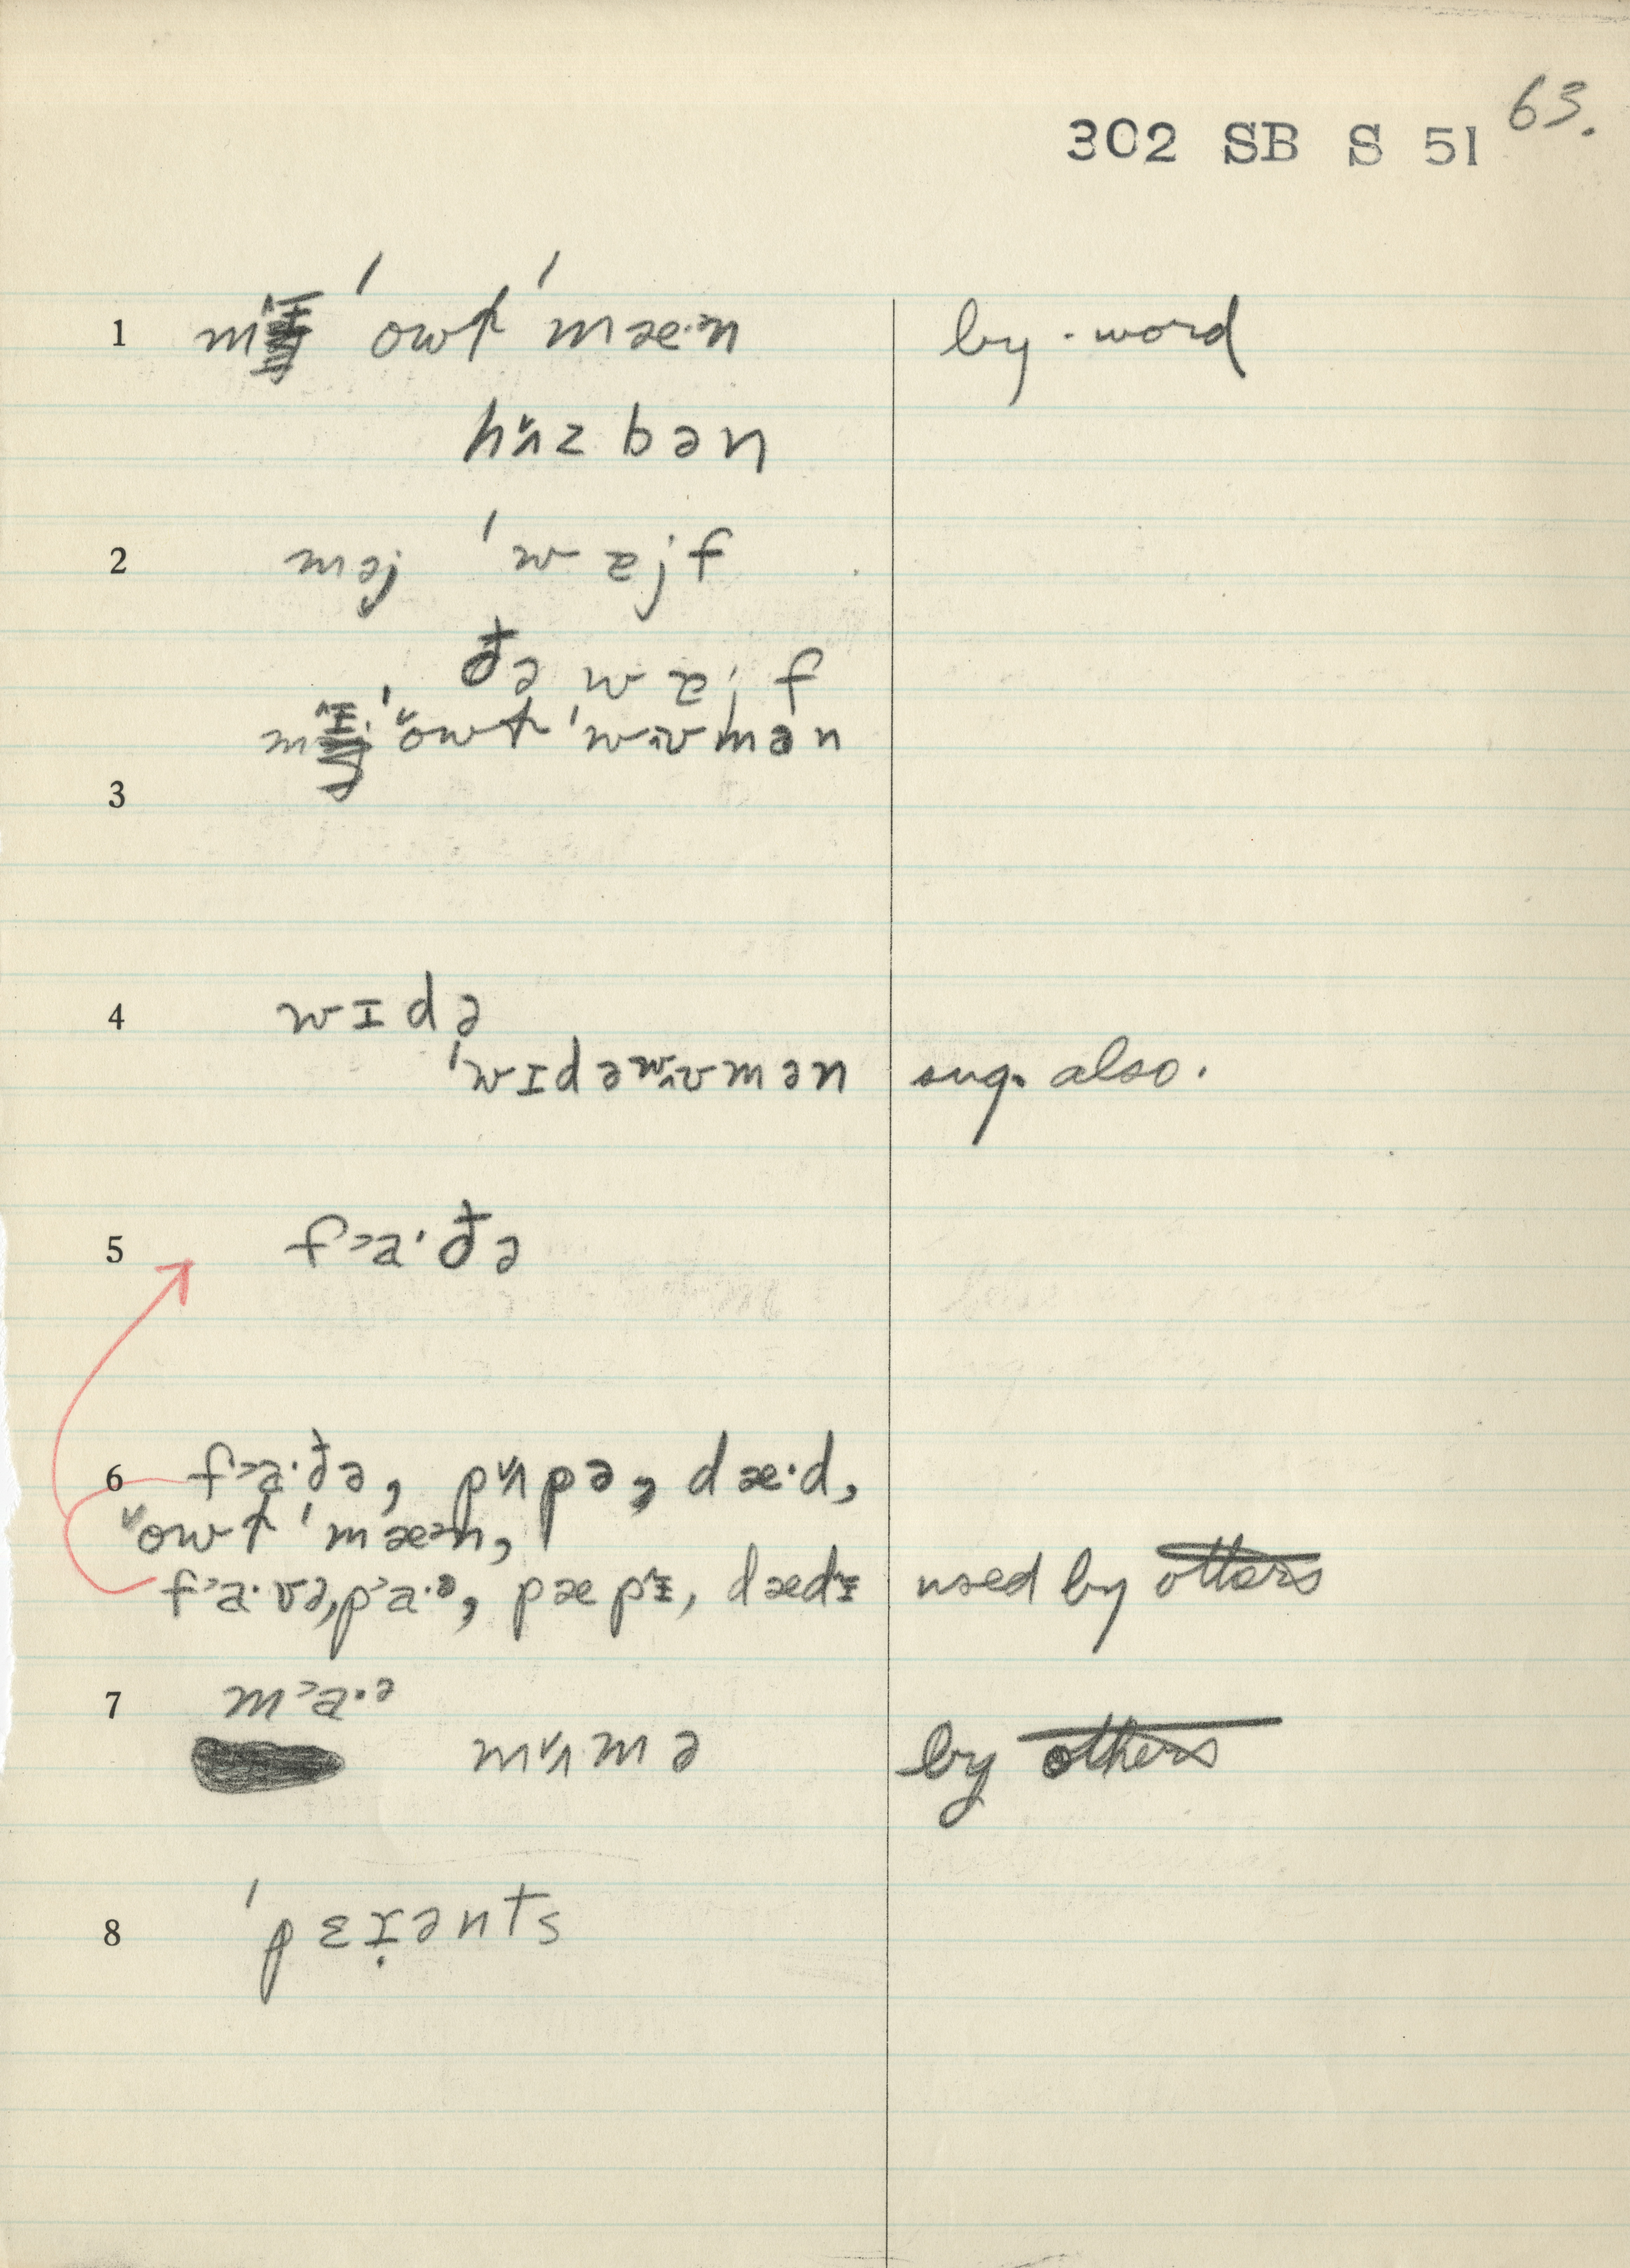 63.
302 SB S 51
1 mɪ^ ˈowɫ ˈmæ·ᵊn by-word
hʌ˅zbən
2 məj ˈwɐjf
đə wɐjf
mɪ^· ˈo˅wɫ ˈwᴧʊmən
3
4 wɪdə
ˈwɪdəwᴧʊmən sug. also.
5 f˃a·đə
6 f˃a·đə, pʌ˅pə, dæ·d,
˅owɫ ˈmæᵊn,
f˃a·və, p˃a·ᵊ, pæpɪ^, dædɪ^ used by others
7 m˃a·ᵊ
mʌ˅mə by others
8 ˈpɛɪ̣ənts